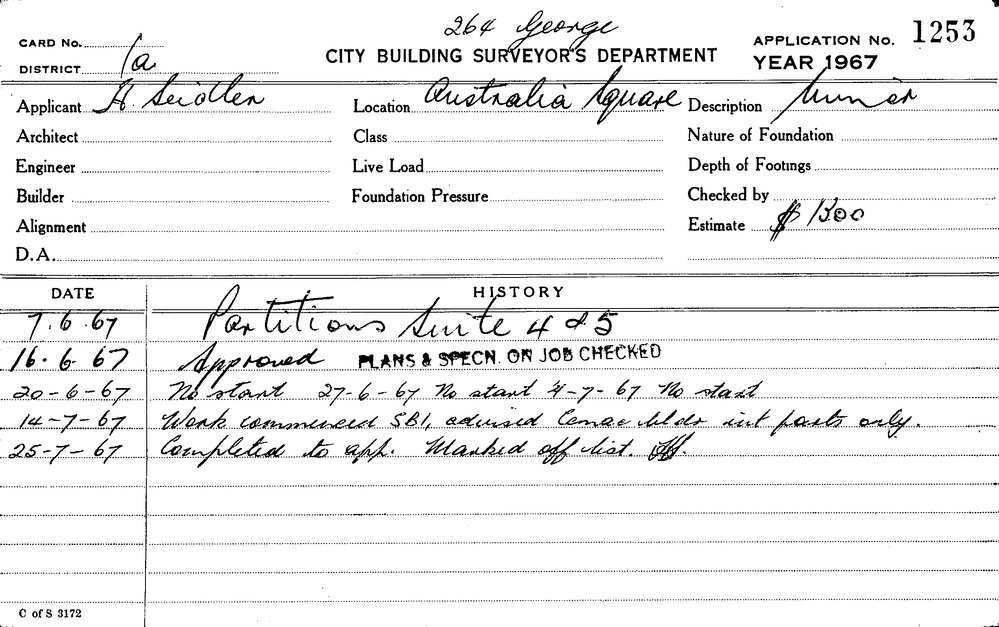 264 George
CARD No. CITY BUILDING SURVEYOR'S DEPARTMENT APPLICATION No. 1253
DISTRICT 1a YEAR 1967
Applicant H. Seidler Location Australia Square Description Minor
Architect Class Nature of Foundation
Engineer Live Load Depth of Footings
Builder Foundation Pressure Checked by
Alignment Estimate $ 1300
D.A.
DATE HISTORY
7.6.67 Partitions Suite 4 & 5
16.6.67 Approved PLANS & SPECN. ON JOB CHECKED
20-6-67 No start 27-6-67 No start 4-7-67 No start
14-7-67 Work commenced SB1, advised bldr int parts only.
25-7-67 Completed to app. Marked off list.
C of S 3172